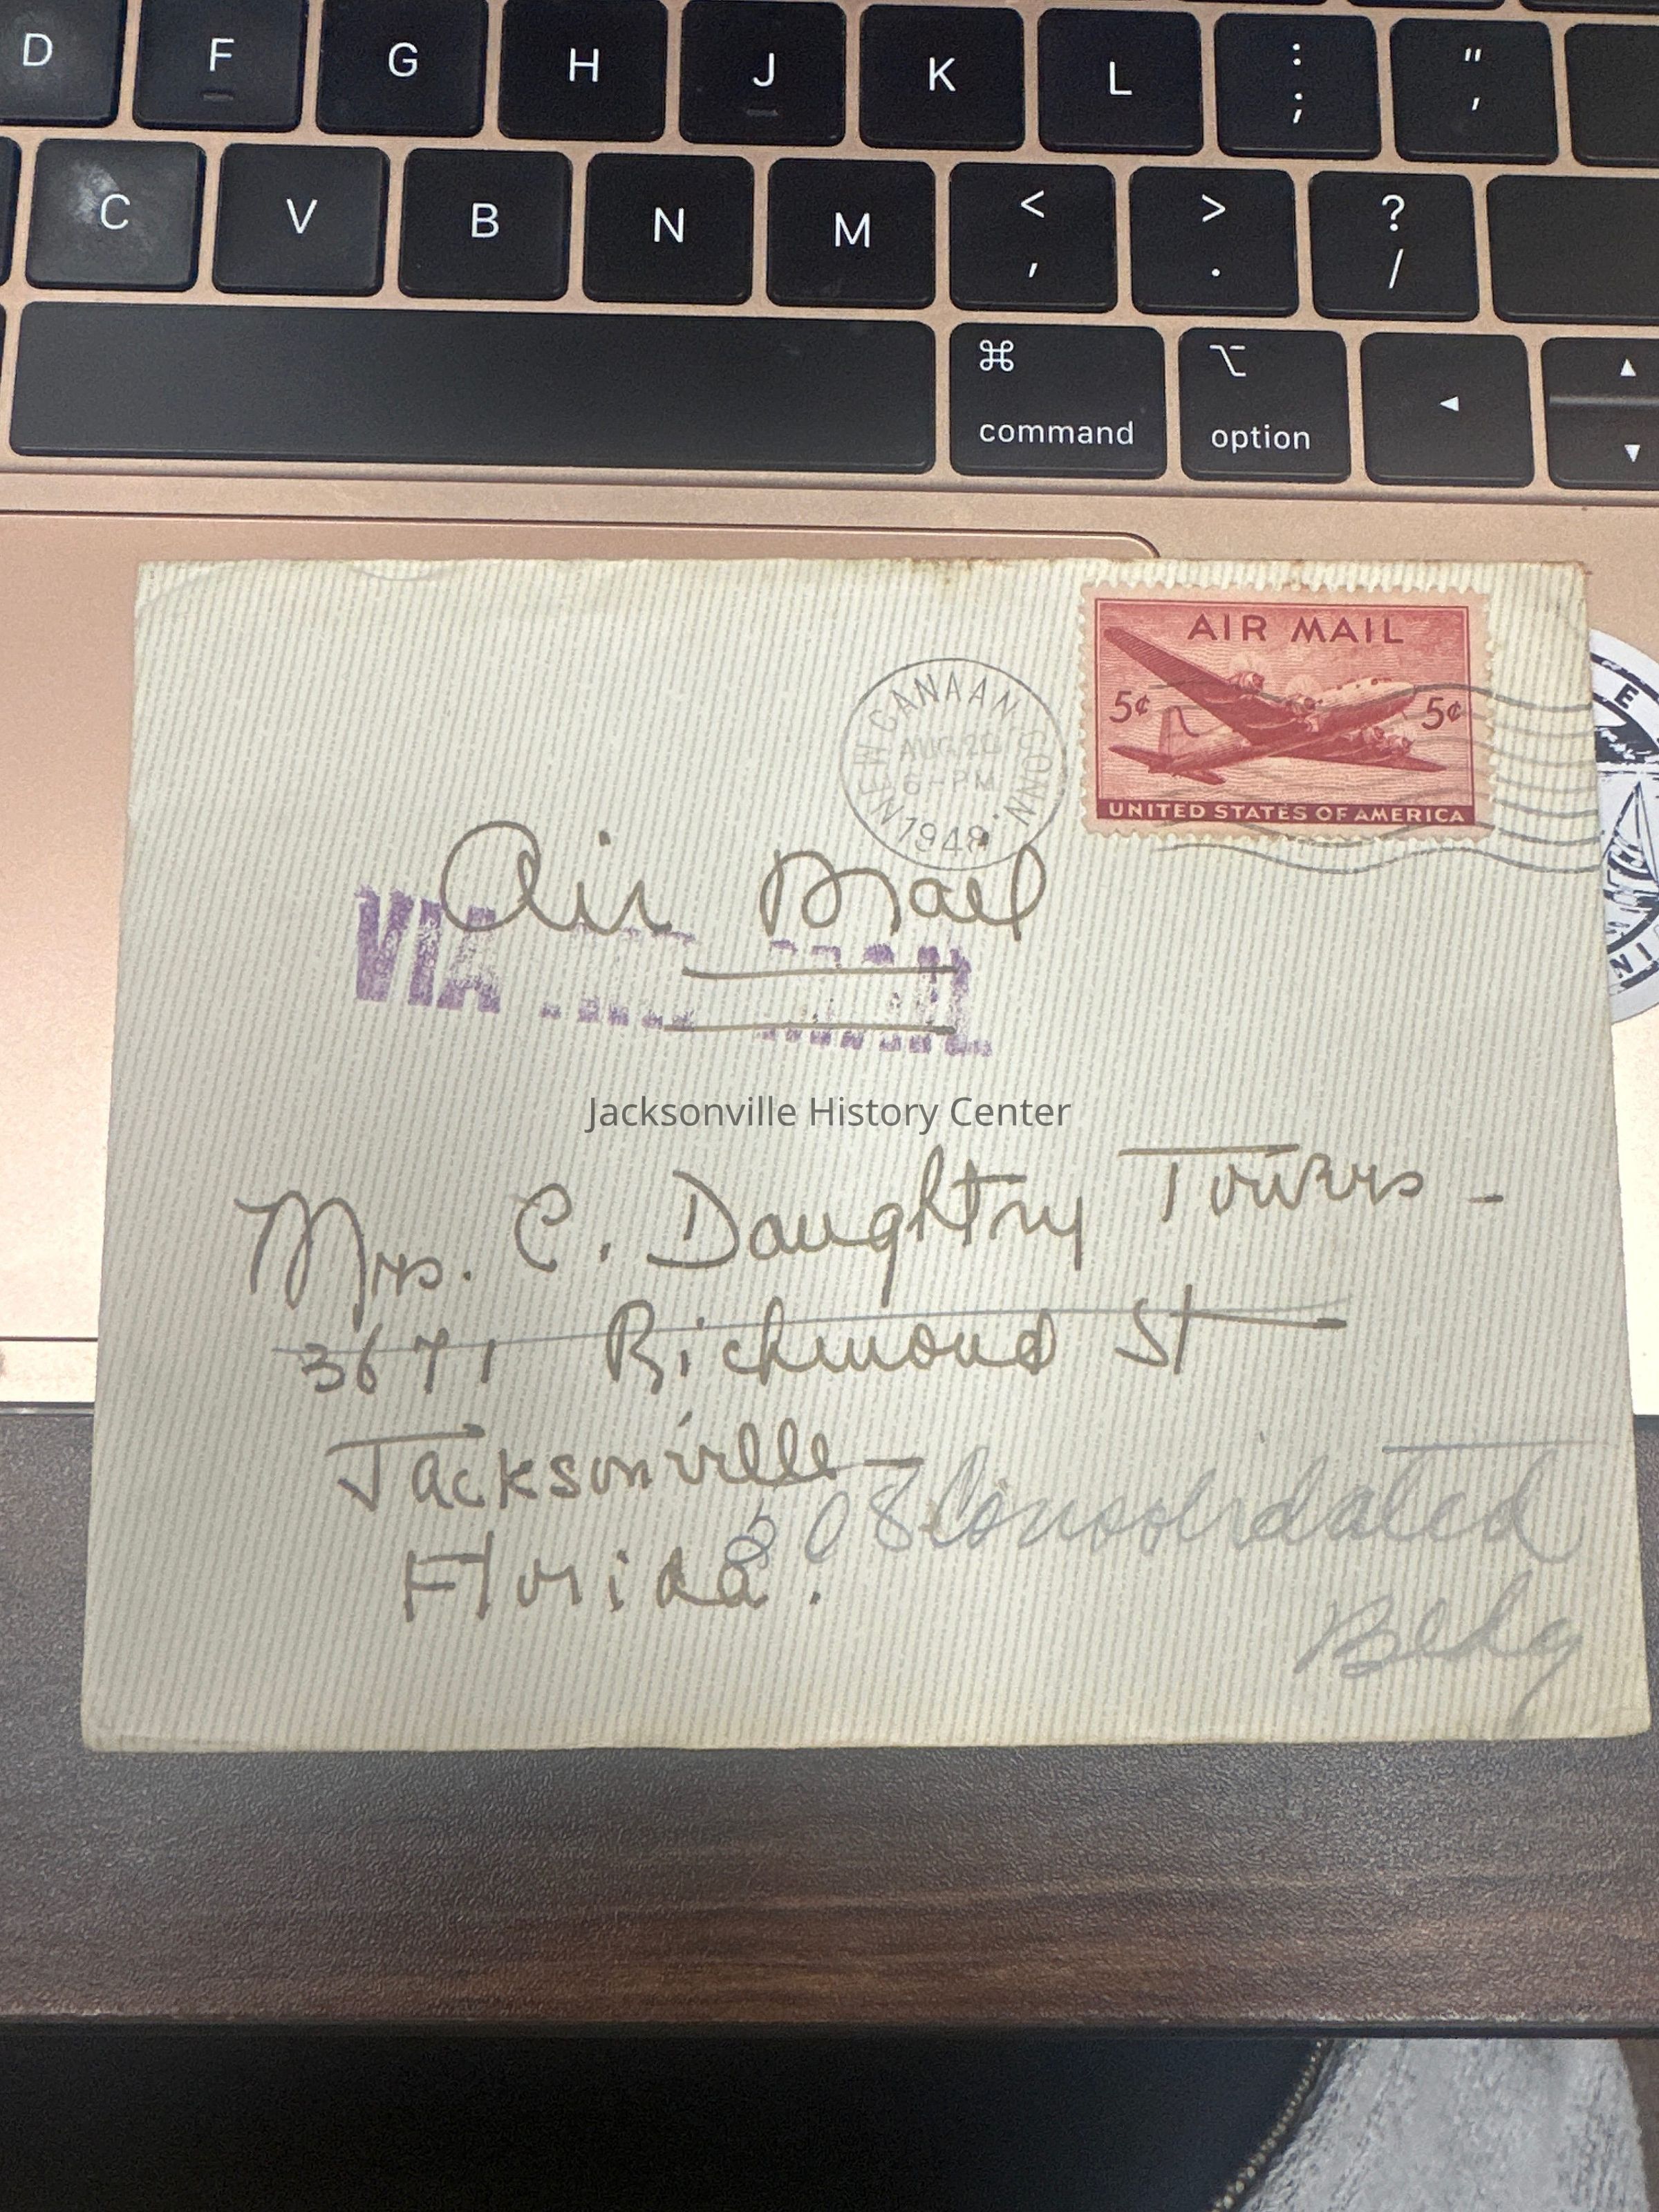 D F G H J K L : ; " '
C V B N M < , > . ? /
⌘ ⌥ ◂ ▴
command option ▾
AIR MAIL
5¢ 5¢
UNITED STATES OF AMERICA
NEW CANAAN CONN.
AUG 20
6-PM
1948
Air Mail
VIA MAIL
Jacksonville History Center
Mrs. C. Daughtry Towers -
3671 Richmond St
Jacksonville -
608 Consolidated
Florida.
Bldg